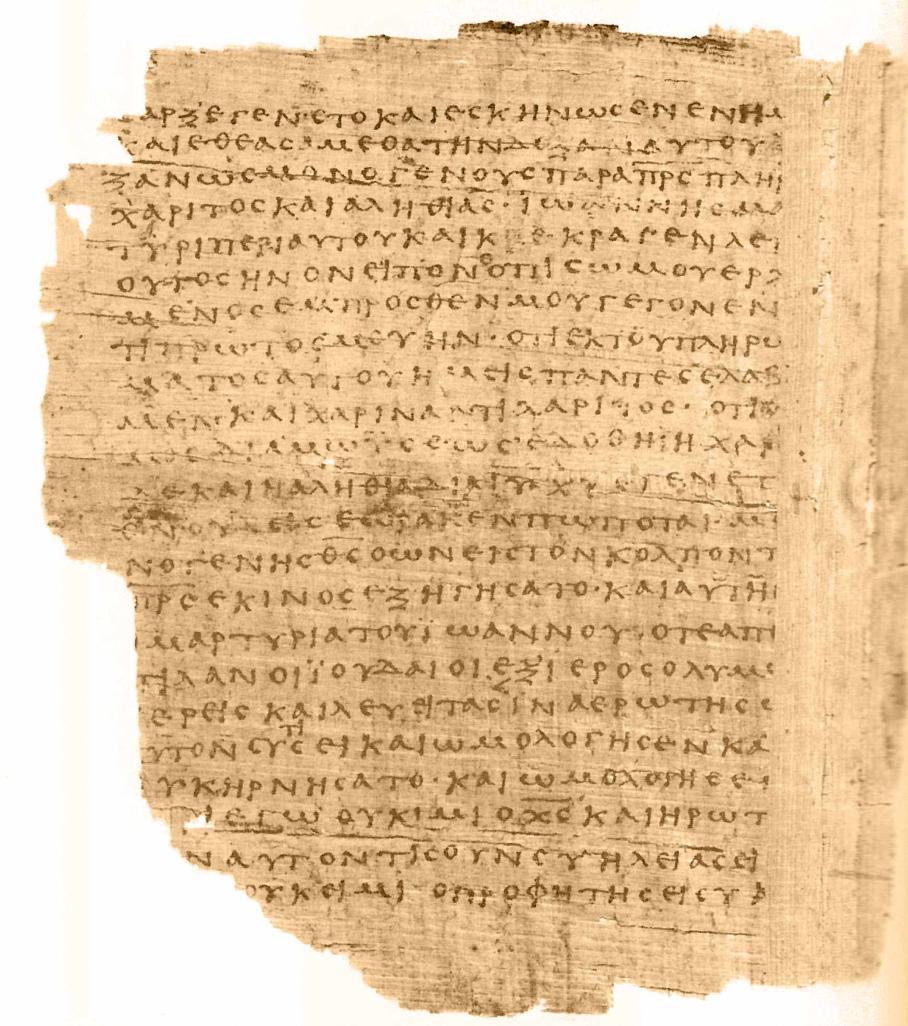 ϲαρξ εγενετο και εϲκηνωϲεν εν ημ
και εθεαϲαμεθα την δοξαν αυτου
ξαν ωϲ μονογενουϲ παρα π̅ρ̅ϲ̅ πλη
χαριτοϲ και αληθιαϲ· ϊωαννηϲ μα
τυρι περι αυτου και κ ε κραγεν λε
ουτοϲ ην ον ειπον ο οπιϲω μου ερχ
μενοϲ εμπροϲθεν μου γεγονεν
τι πρωτοϲ μου ην· οτι εκ του πληρω
ματοϲ αυτου ημειϲ παντεϲ ελαβ
μεν· και χαριν αντι χαριτοϲ· οτι
μοϲ δια μωϋϲεωϲ εδοθη· η χαρ
δε και η αληθια δια ι̅η̅υ̅ χ̅ρ̅υ̅ εγενετ
θ̅ν̅ ουδειϲ εωρακεν πωποτε· μ
νογενηϲ θ̅ϲ̅ ο ων ειϲ τον κολπον τ
π̅ρ̅ϲ̅ εκινοϲ εξηγηϲατο· και αυτη
μαρτυρια του ϊωαννου· οτε απε
τιλαν οι ϊουδαιοι εξ ιεροϲολυμ
ερειϲ και λευειταϲ ινα ερωτηϲ
υτον ϲυ τιϲ ει και ωμολογηϲεν κα
υκ ηρνηϲατο· και ωμολογηϲε
εγω ουκ ιμι ο χ̅ρ̅ϲ̅ και ηρωτ
ν αυτον τιϲ ουν ϲυ ηλειαϲ ει
ουκ ειμι ο προφητηϲ ει ϲυ κ